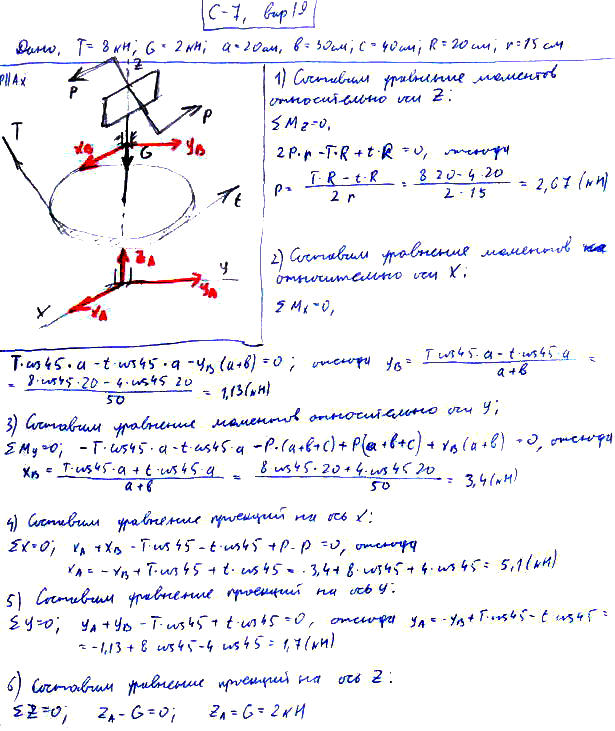 С-7, вар 19
Дано, T = 8 кН; G = 2 кН; a = 20 см, в = 30 см; с = 40 см; R = 20 см; r = 15 см
P||Ax
Z
P
P
T
XB
YB
G
t
ZA
Y
YA
X
XA
1) Составим уравнение моментов
относительно оси Z:
ΣMz=0,
2P·r - T·R + t·R = 0, отсюда
P = (T·R - t·R)/(2r) = (8·20 - 4·20)/(2·15) = 2,67 (кН)
2) Составим уравнение моментов
относительно оси X:
ΣMx=0,
T·cos45·a - t·cos45·a - YB(a+в) = 0; отсюда YB = (T·cos45·a - t·cos45·a)/(a+в) =
= (8·cos45·20 - 4·cos45·20)/50 = 1,13 (кН)
3) Составим уравнение моментов относительно оси Y;
ΣMy=0; -T·cos45·a - t·cos45·a - P·(a+в+c) + P(a+в+c) + XB(a+в) = 0, отсюда
XB = (T·cos45·a + t·cos45·a)/(a+в) = (8 cos45·20 + 4·cos45 20)/50 = 3,4 (кН)
4) Составим уравнение проекций на ось X:
ΣX=0; XA + XB - T·cos45 - t·cos45 + P - P = 0, отсюда
XA = -XB + T·cos45 + t·cos45 = -3,4 + 8·cos45 + 4·cos45 = 5,1 (кН)
5) Составим уравнение проекций на ось Y:
ΣY=0; YA + YB - T·cos45 + t·cos45 = 0, отсюда YA = -YB + T·cos45 - t·cos45 =
= -1,13 + 8 cos45 - 4 cos45 = 1,7 (кН)
6) Составим уравнение проекций на ось Z:
ΣZ=0; ZA - G = 0; ZA = G = 2 кН